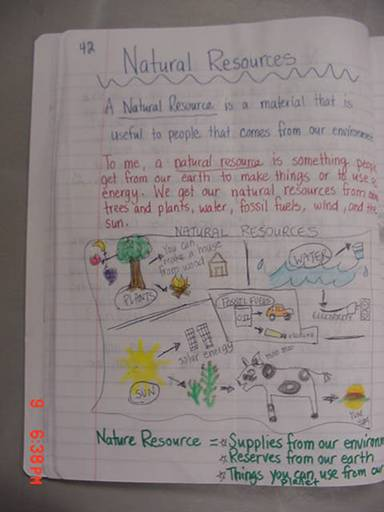 42
Natural Resources
A Natural Resource is a material that is
useful to people that comes from our environme
To me, a natural resource is something people
get from our earth to make things or to use as
energy. We get our natural resources from
trees and plants, water, fossil fuels, wind, and the
sun.
NATURAL RESOURCES
You can
make a house
from wood
PLANTS
WATER
FOSSIL FUELS
OIL
Electricity
solar energy
SUN
Nature Resource = Supplies from our environm
Reserves from our earth
Things you can use from our
planet
9 6:38PM